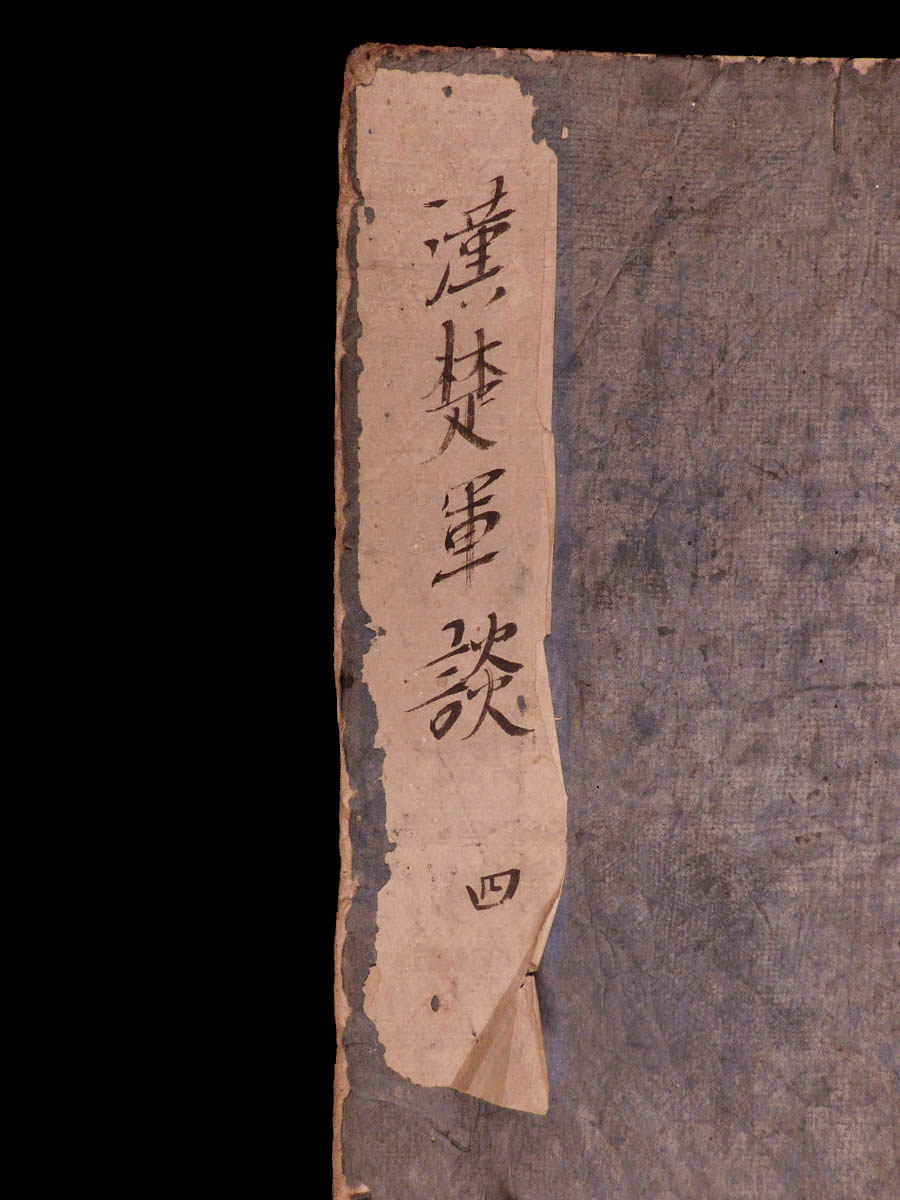 漢楚軍談
四